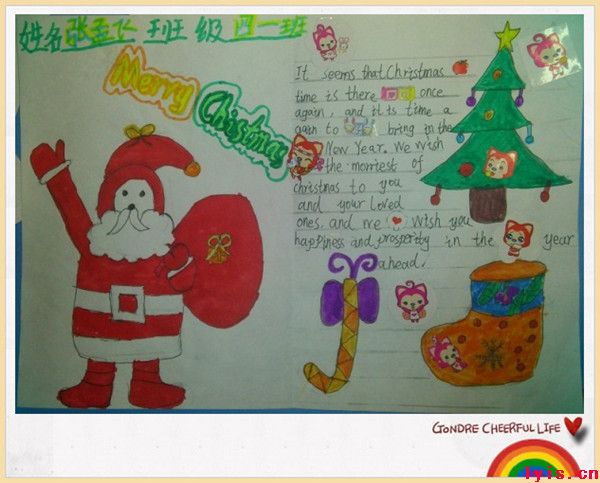 姓名 张孟飞 班级 四一班
Merry
Chistmas
It seems that Christmas
time is there once
again, and it is time a
gain to bring in the
New Year. We wish
the morriest of
christmas to you
and your loved
ones, and we wish you
happiness and prosperity in the year
ahead.
GONDRE CHEERFUL LIFE
lyis.cn